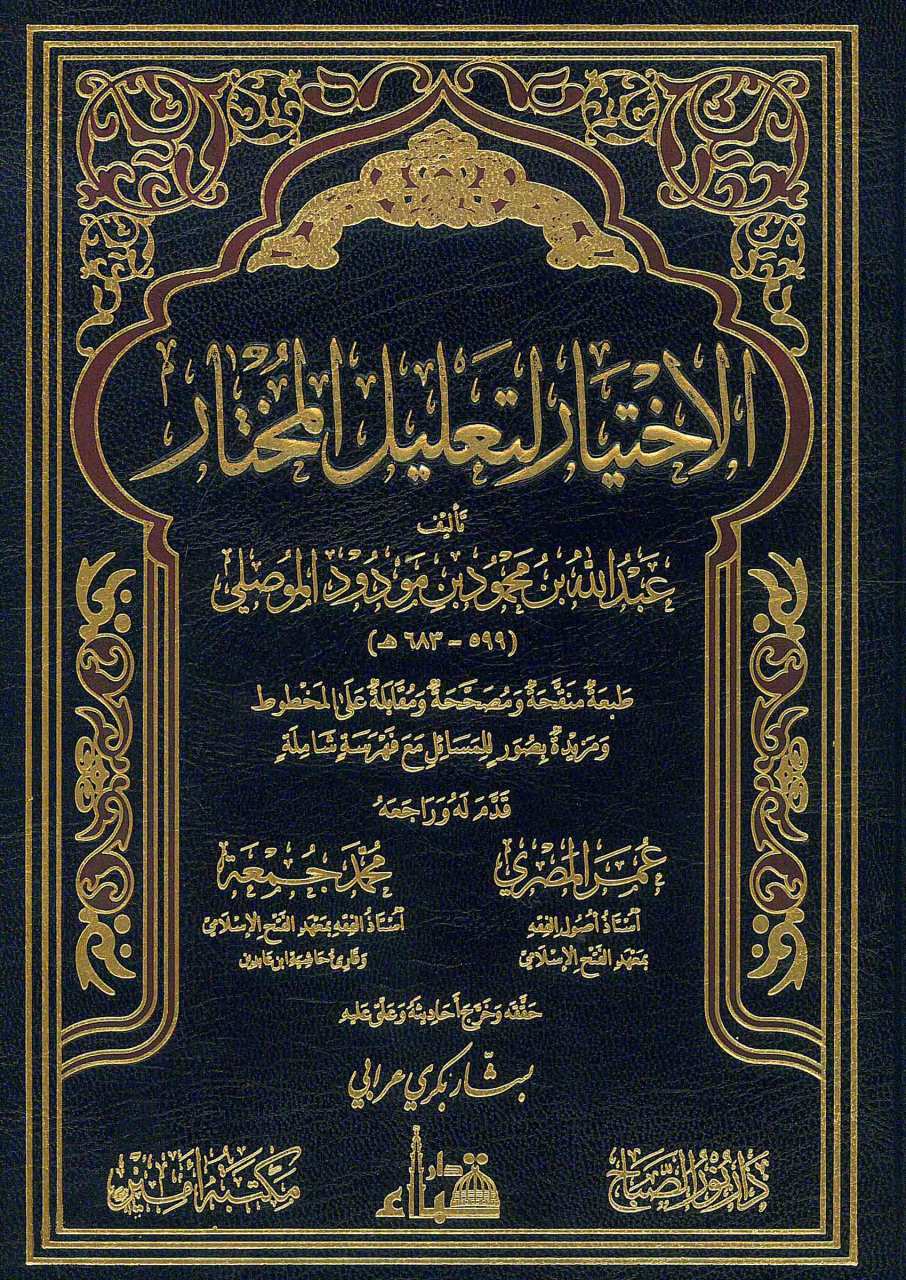 الاخْتِيَار لتَعْلِيل المُختَار
تأليف
عَبْد الله بن مَحْمُود بن مَوْدُود المَوصِلي
(٥٩٩ - ٦٨٣ هـ)
طَبعَةٌ منَقَّحَةٌ وَمُصَحَّحَةٌ وَمُقَابَلَةٌ عَلَى المَخْطُوط
وَمَزِيْدَةٌ بِصُوَرٍ لِلمَسَائِلِ مَعَ فَهْرَسَةٍ شَامِلَةٍ
قَدَّمَ لَهُ وَرَاجَعَهُ
عُمَر المَصْرِي
مُحَمَّد جُمعَة
أسْتَاذُ أصُول الفِقهِ
أسْتَاذُ الفِقهِ بمَعْهَدِ الفَتْح الإسْلَامي
بمَعْهَدِ الفَتْح الإسْلَامي
وَقَارِئ حَاشِيَة ابن عَابدين
حَقَّقَه وَخَرَّجَ أحَادِيثَهُ وَعَلَّقَ عَلَيهِ
بشّار بكري عرابي
دَار نُوْر الصَّبَاح
دار قباء
مكتَبَة أفنان